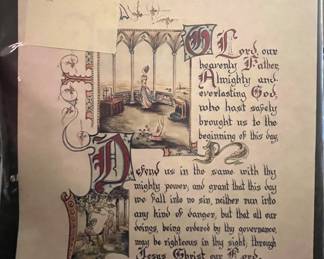 O Lord, our
heavenly Father,
Almighty and
everlasting God,
who hast safely
brought us to the
beginning of this day,
Defend us in the same with thy
mighty power, and grant that this day
we fall into no sin, neither run into
any kind of danger, but that all our
doings, being ordered by thy governance,
may be righteous in thy sight; through
Jesus Christ our Lord.